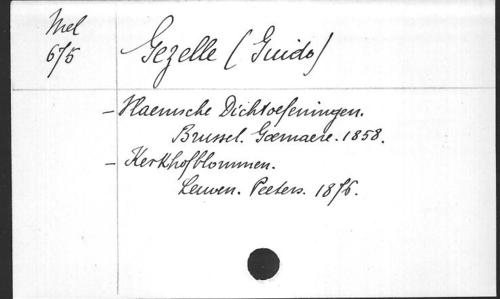 Mel
675
Gezelle (Guido)
- Vlaemsche Dichtoefeningen.
Brussel. Goemaere. 1858.
- Kerkhofblommen.
Leuven. Peeters. 1876.